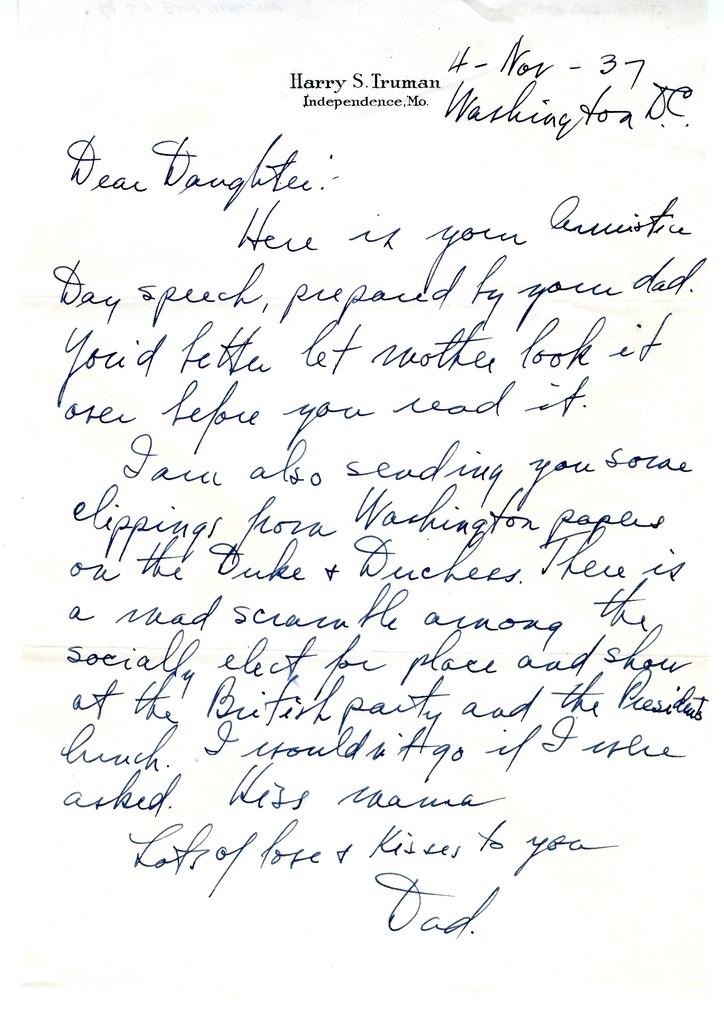 Harry S. Truman
Independence, Mo.
4 - Nov - 37
Washington D.C.
Dear Daughter:-
Here is your Armistice
Day speech, prepared by your dad.
You'd better let mother look it
over before you read it.
I am also sending you some
clippings from Washington papers
on the Duke + Duchess. There is
a mad scramble among the
socially elect for place and show
at the British party and the Presidents
lunch. I wouldn't go if I were
asked. Kiss mama
Lots of love + Kisses to you
Dad.